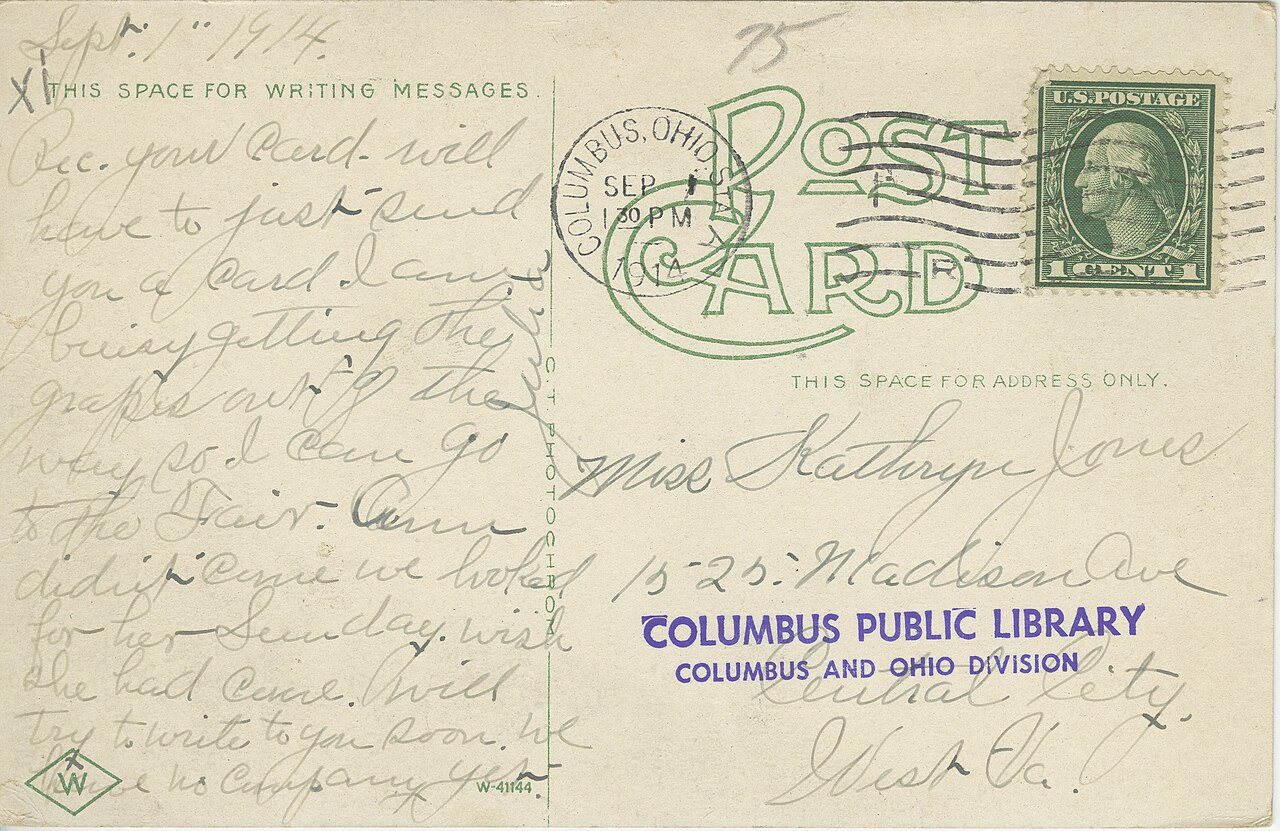 Sept. 1" 1914.
XI
THIS SPACE FOR WRITING MESSAGES.
Rec. your card - will
have to just send
you a card. I am
buisy getting the
grapes out of the
way so I can go
to the Fair. Ann
didn't come we looked
for her Sunday. wish
she had come. Will
try to write to you soon. We
have no company yet.
W
W-41144.
C. T. PHOTOCHROM
75
POST
CARD
COLUMBUS, OHIO. STA.
SEP 1
1 30 PM
1914
F
R
U.S. POSTAGE
1 CENT 1
THIS SPACE FOR ADDRESS ONLY.
Miss Kathryn Jones
1525. Madison Ave
COLUMBUS PUBLIC LIBRARY
COLUMBUS AND OHIO DIVISION
Central City.
West Va.